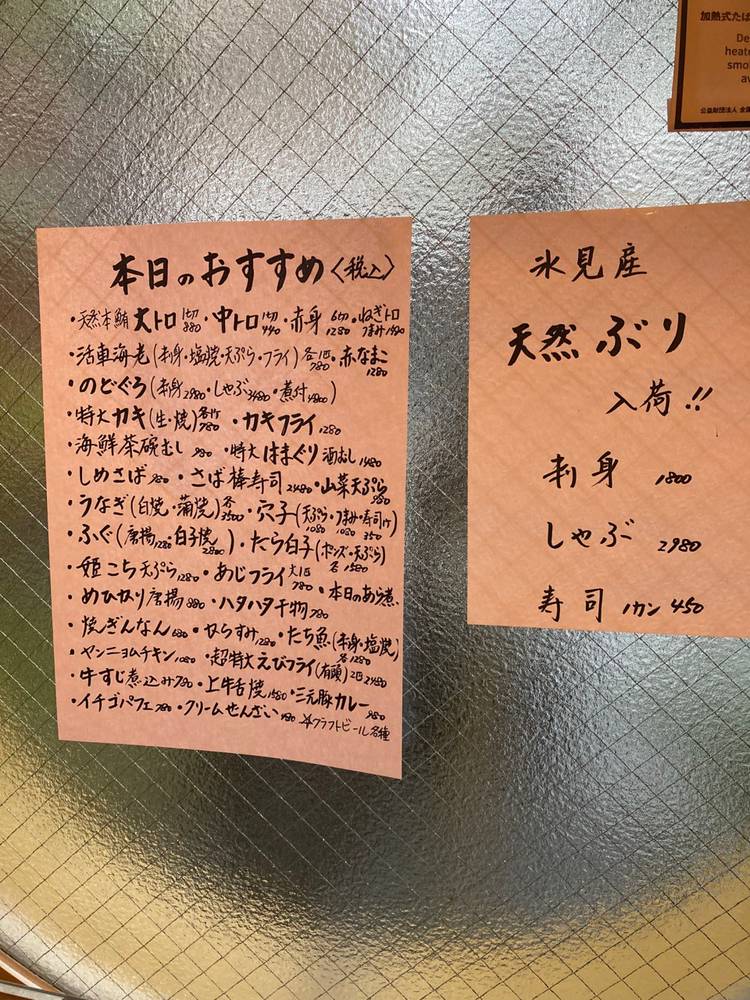 加熱式たば
De
heate
smo
av
公益財団法人 全国
本日のおすすめ〈税込〉
・天然本鮪 大トロ 1切880・中トロ 1切440・赤身 6切1280・ねぎトロ つまみ1480
・活車海老(刺身・塩焼・天ぷら・フライ)各1匹780・赤なまこ1280
・のどぐろ(刺身2980・しゃぶ3480・煮付4800)
・特大カキ(生・焼)各1ヶ780・カキフライ1280
・海鮮茶碗むし980・特大はまぐり酒むし1480
・しめさば980・さば棒寿司2480・山菜天ぷら980
・うなぎ(白焼・蒲焼)各3500・穴子(天ぷら1080・つまみ1080・寿司1ヶ350)
・ふぐ(唐揚1280・白子焼2800)・たら白子(ポンズ・天ぷら)各1580
・姫こち天ぷら1280・あじフライ大1匹780・本日のあら煮
・めひかり唐揚880・ハタハタ干物780
・焼ぎんなん680・からすみ1280・たち魚(刺身・塩焼)各1280
・ヤンニョムチキン1080・超特大えびフライ(有頭)2匹2480
・牛すじ煮込み780・上牛舌焼1580・三元豚カレー980
・イチゴパフェ780・クリームぜんざい780 ☆クラフトビール各種
氷見産
天然ぶり
入荷!!
刺身 1800
しゃぶ 2980
寿司 1カン 450